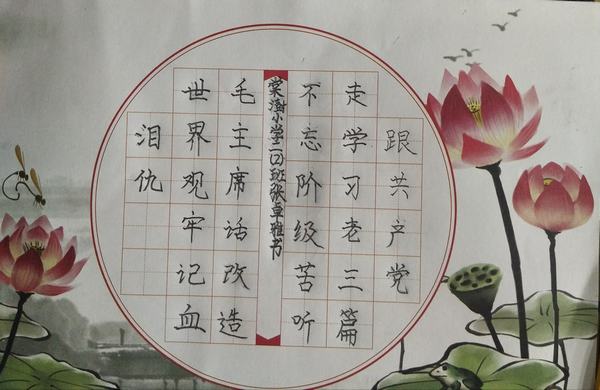 跟共产党
走学习老三篇
不忘阶级苦听
棠澍小学二(2)班张卓雅书
毛主席话改造
世界观牢记血
泪仇